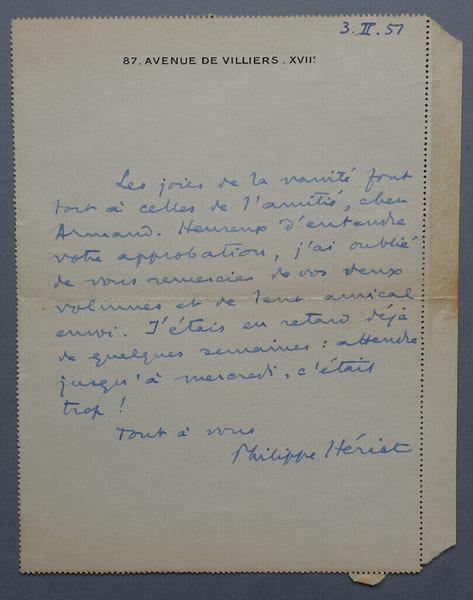 3.II.51
87, AVENUE DE VILLIERS . XVIIE
Les joies de la vanité font
tort à celles de l'amitié, cher
Armand. Heureux d'entendre
votre approbation, j'ai oublié
de vous remercier de vos deux
volumes et de leur amical
envoi. J'étais en retard déjà
de quelques semaines : attendre
jusqu'à mercredi, c'était
trop !
Tout à vous
Philippe Hériat